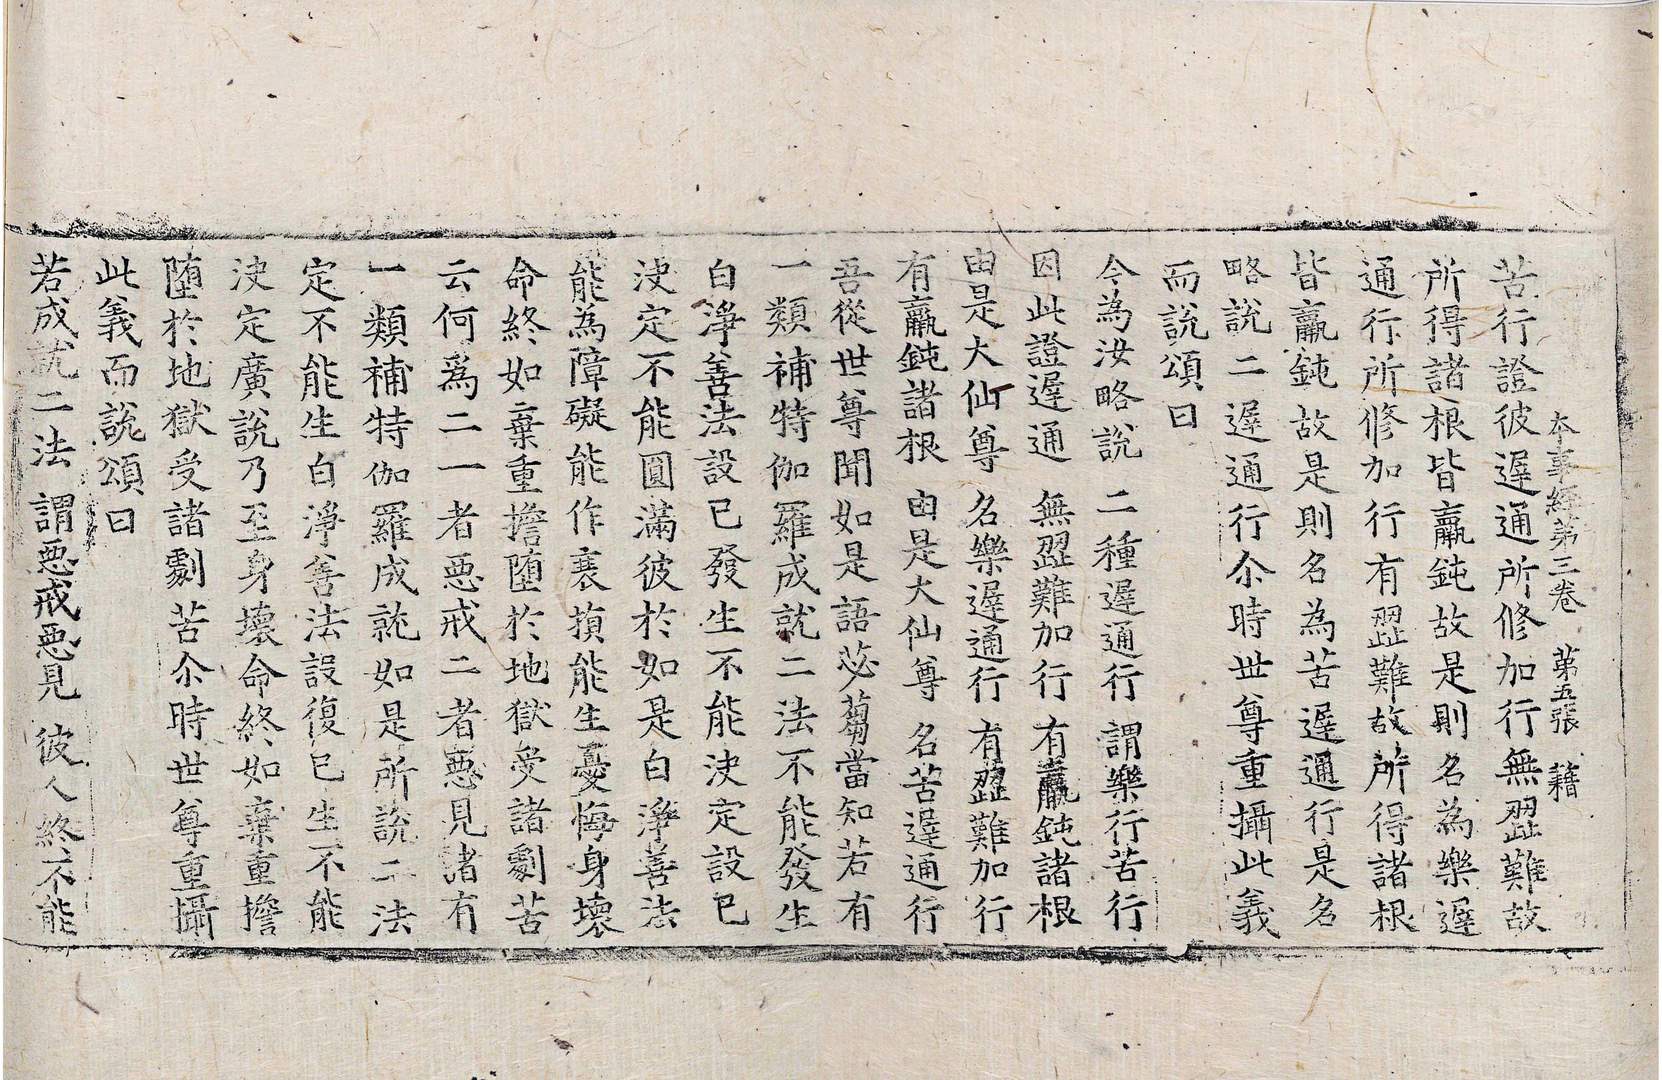 本事經第三卷 第五張 籍
苦行證彼遟通所修加行無澀難故
所得諸根皆羸鈍故是則名為樂遟
通行所修加行有澀難故所得諸根
皆羸鈍故是則名為苦遟通行是名
略說二遟通行尒時世尊重攝此義
而說頌曰
今為汝略說 二種遟通行 謂樂行苦行
因此證遟通 無澀難加行 有羸鈍諸根
由是大仙尊 名樂遟通行 有澀難加行
有羸鈍諸根 由是大仙尊 名苦遟通行
吾從世尊聞如是語苾芻當知若有
一類補特伽羅成就二法不能發生
白淨善法設已發生不能决定設已
决定不能圓滿彼於如是白淨善法
能為障礙能作衰損能生憂悔身壞
命終如棄重擔墮於地獄受諸劇苦
云何爲二一者惡戒二者惡見諸有
一類補特伽羅成就如是所說二法
定不能生白淨善法設復已生不能
决定廣說乃至身壞命終如棄重擔
墮於地獄受諸劇苦尒時世尊重攝
此義而說頌曰
若成就二法 謂惡戒惡見 彼人終不能